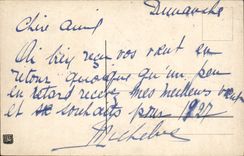 Dimanche
Chère amie
Ai bien reçu vos vœux en
retour quoique qu'un peu
en retard recevez mes meilleurs vœux
et souhaits pour 1927